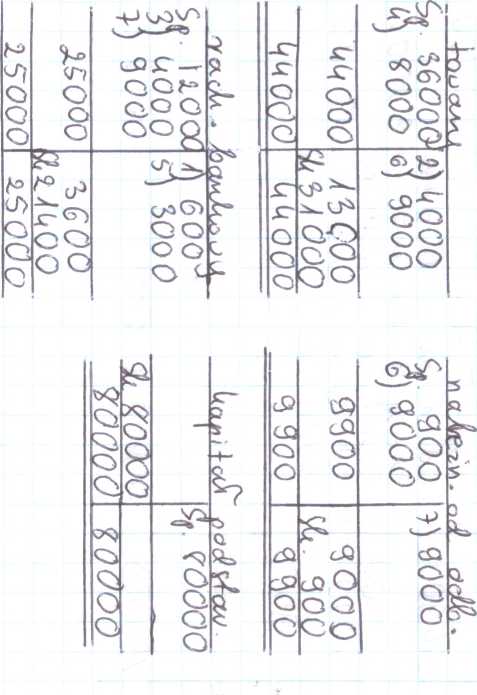 towary
Sp. 36000 2) 4000
4) 8000 6) 9000
44000 13000
Sk 31000
44000 44000
należn. od odb.
Sp. 900 7) 9000
6) 9000
9900 9000
Sk. 900
9900 9900
rach. bankowy
Sp. 12000 1) 600
3) 4000 5) 3000
7) 9000
25000 3600
Sk 21400
25000 25000
kapitał podstaw.
Sp. 80000
Sk 80000
80000 80000